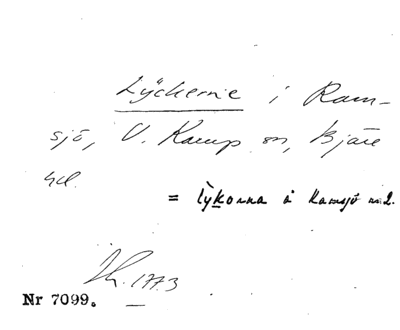 Lÿckerne i Ram-
sjö, V. Karup sn, Bjäre
hd.
= lykorna å Ramsjö nr 2.
1773
Nr 7099.